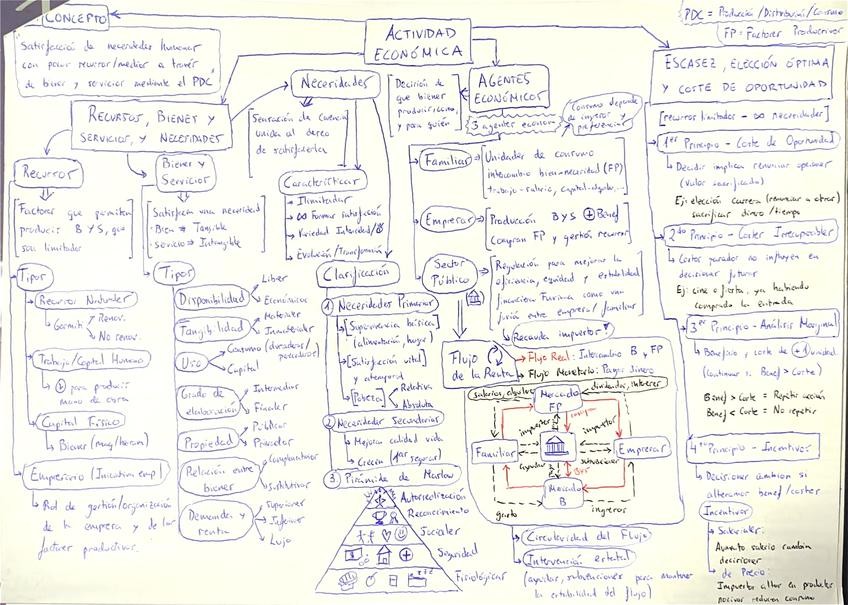 CONCEPTO
Satisfacción de necesidades humanas
con pocos recursos/medios a través
de bienes y servicios mediante el PDC
ACTIVIDAD
ECONÓMICA
PDC = Producción/Distribución/Consumo
FP = Factores Productivos
RECURSOS, BIENES Y
SERVICIOS, Y NECESIDADES
Recursos
Factores que permiten
producir B y S, que
son limitados
Tipos
Recursos Naturales
Renov.
No renov.
Trabajo/Capital Humano
para producir
mano de obra
Capital Físico
Bienes (maq/herram)
Empresario (Iniciativa emp)
Rol de gestión/organización
de la empresa y de los
factores productivos.
Bienes y
Servicios
Satisfacen una necesidad
· Bien → Tangible
· Servicio → Intangible
Tipos
Disponibilidad
Libres
Económicos
Tangibilidad
Materiales
Inmateriales
Uso
Consumo (duraderos/
Capital
Grado de
elaboración
Intermedios
Finales
Propiedad
Públicos
Privados
Relación entre
bienes
Complementarios
Sustitutivos
Demanda y
renta
Superiores
Inferiores
Lujo
Necesidades
Sensación de carencia
unida al deseo
de satisfacerla
Características
Ilimitadas
∞ Formas satisfacción
Variedad Intensidad
Evolución/Transformación
Clasificación
1 Necesidades Primarias
[Supervivencia básica]
(alimentación, hogar)
[Satisfacción vital]
y atemporal
[Pobreza]
Relativa
Absoluta
2 Necesidades Secundarias
Mejoran calidad vida
Crecen (1as seguras)
3 Pirámide de Maslow
Autorrealización
Reconocimiento
Sociales
Seguridad
Fisiológicas
AGENTES
ECONÓMICOS
Decisión de
que bienes
producir, cómo,
y para quién
3 agentes econom.
Consumo depende
de ingresos y
preferencias
Familias
Unidades de consumo
intercambio bien-necesidad (FP)
trabajo-salario, capital-alquiler,...
Empresas
Producción B y S ⊕ Benef
compran FP y gestión recursos
Sector
Público
Regulación para mejorar la
eficiencia, equidad y estabilidad
Recauda impuestos
Flujo
de la Renta
Flujo Real: Intercambio B y FP
Flujo Monetario: Pagos dinero
salarios, alquileres
dividendos, intereses
Mercado
FP
impuestos
impuestos
Familias
Empresas
subvenciones
Mercado
B
gasto
ingresos
Circularidad del Flujo
Intervención estatal
(ayudas, subvenciones para mantener
la estabilidad del flujo)
ESCASEZ, ELECCIÓN ÓPTIMA
Y COSTE DE OPORTUNIDAD
[recursos limitados - ∞ necesidades]
1er Principio - Coste de Oportunidad
Decidir implica renunciar opciones
(Valor sacrificado)
Ej: elección carrera (renunciar a otras)
sacrificar dinero/tiempo
2do Principio - Costes Irrecuperables
Costes pasados no influyen en
decisiones futuras
Ej: cine oferta, ya habiendo
comprado la entrada
3er Principio - Análisis Marginal
Beneficio y coste de +1 unidad.
(continuar si Benef > Coste)
Benef > Coste = Repetir acción
Benef < Coste = No repetir
4to Principio - Incentivos
Decisiones cambian si
alteramos benef/costes
Incentivos
Salariales:
Aumento salario cambia
decisiones
de Precio:
Impuestos altos en productos
nocivos reducen consumo